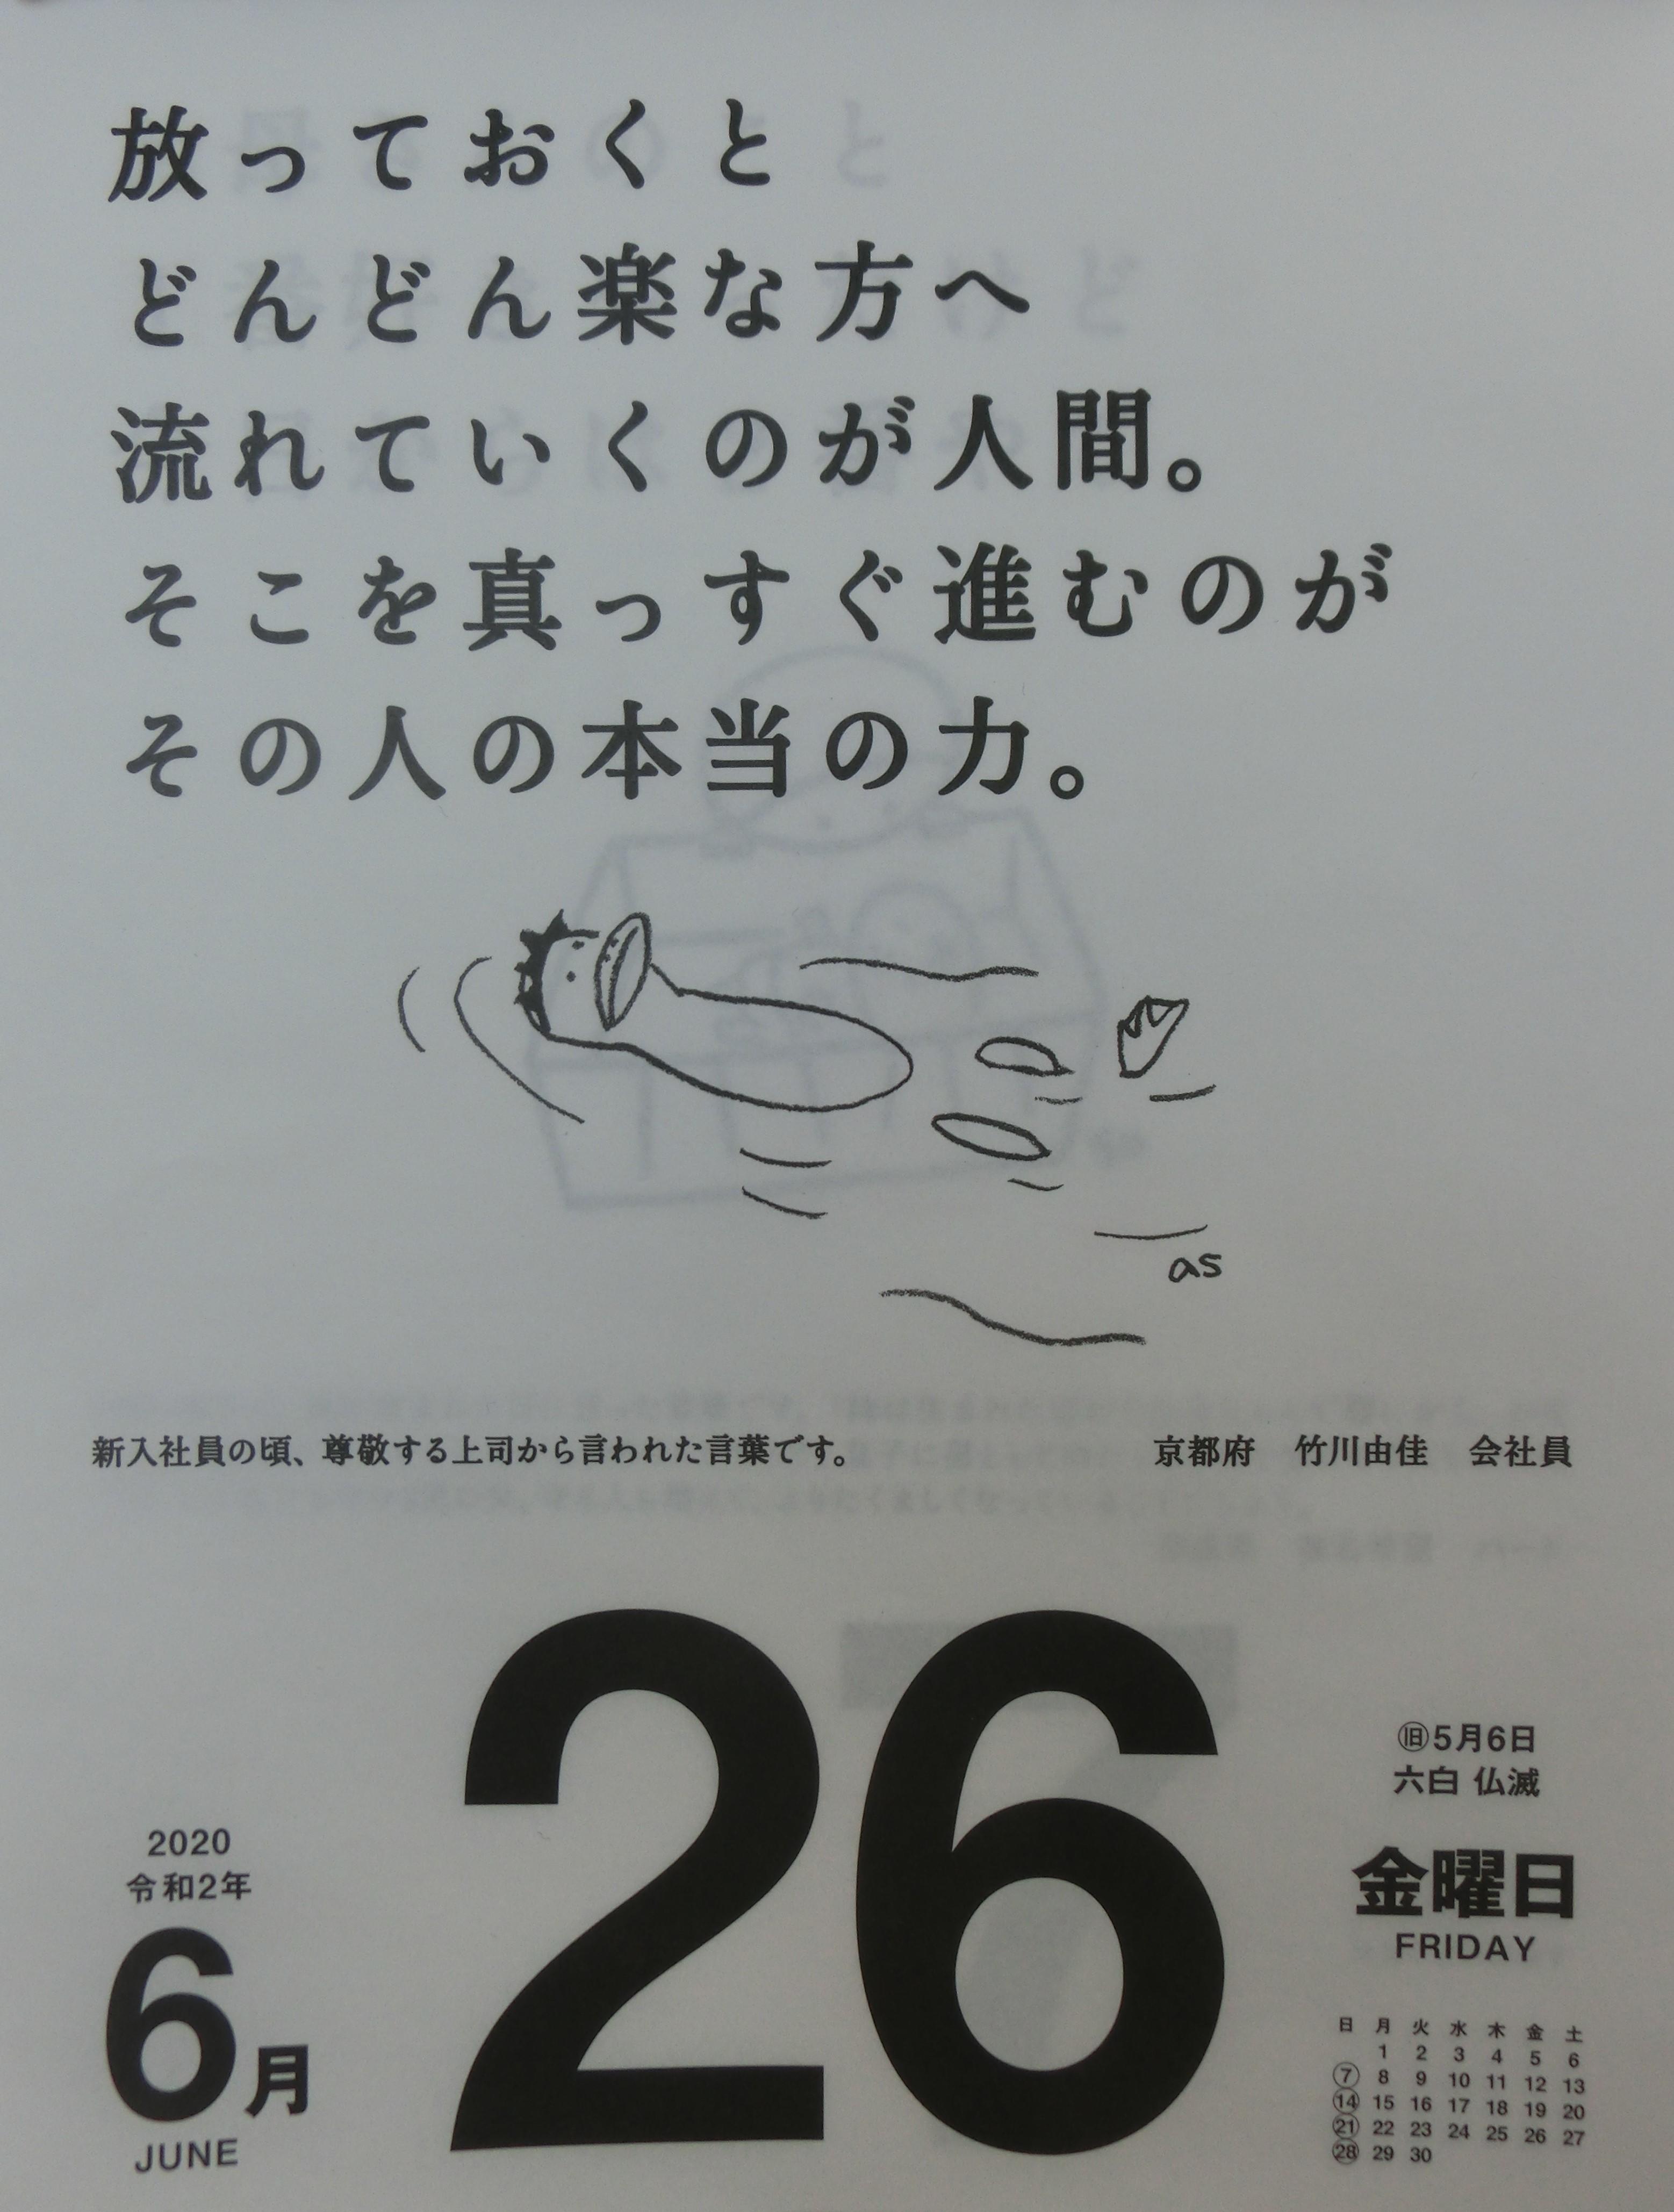 放っておくと
どんどん楽な方へ
流れていくのが人間。
そこを真っすぐ進むのが
その人の本当の力。
as
新入社員の頃、尊敬する上司から言われた言葉です。 京都府 竹川由佳 会社員
2020
令和2年
6月
JUNE
26
㊐5月6日
六白 仏滅
金曜日
FRIDAY
日 月 火 水 木 金 土
1 2 3 4 5 6
7 8 9 10 11 12 13
14 15 16 17 18 19 20
21 22 23 24 25 26 27
28 29 30